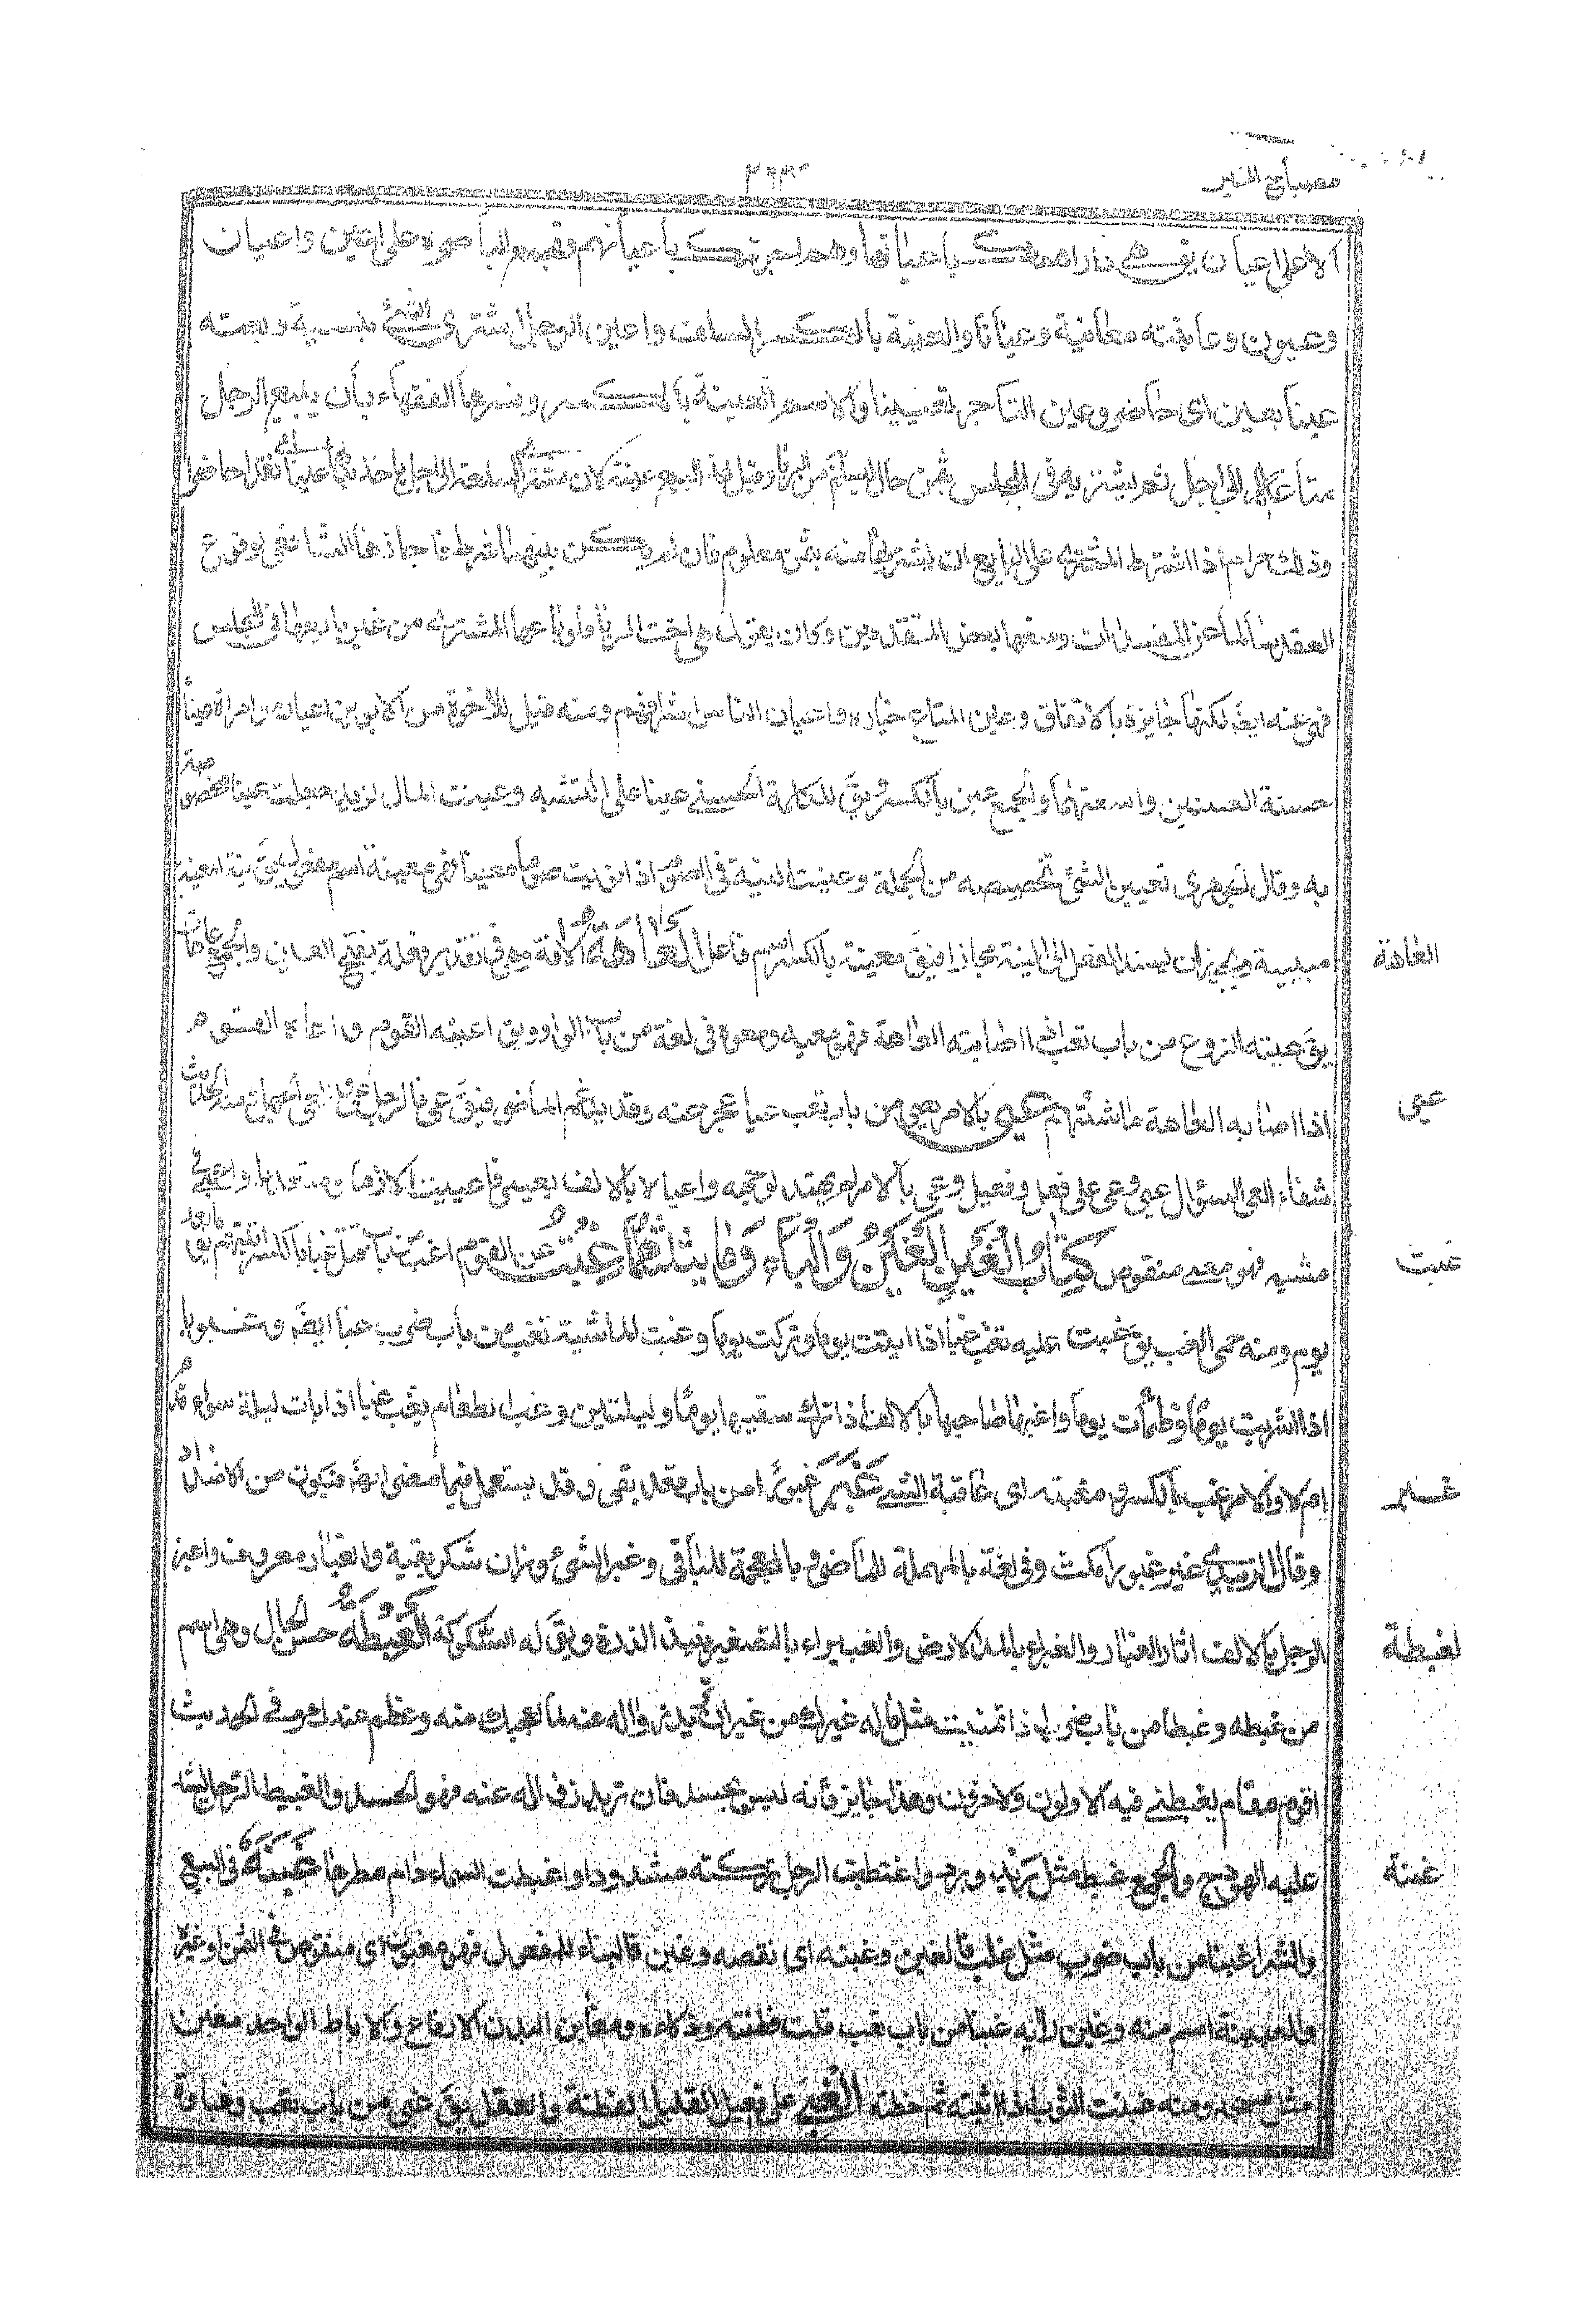 مصباح المنير
الا على اعيان يق هى دراهمك باعيانها وهم اخوتك باعيانهم وقيد والباصرة على اعين واعيان
وعيون وعاينته معاينة وعيانا والعينة بالكسر السلف واعين الرجل اشترى الشئ بنسيئة وبعته
عينا بعين اى حاضر وعين التاجر تعيينا والاسم العينة بالكسر وفسرها الفقهاء بأن يبيع الرجل
متاعه الى اجل ثم يشتريه فى المجلس بثمن حال ليسلم من الربا وقيل لهذا البيع عينة لان مشترى السلعة الى اجل ياخذ بدلها عينا اى نقدا حاضرا
وذلك حرام اذا اشترط المشترى على البايع ان يشتريها منه بثمن معلوم فان لم يكن بينهما شرط فاجازها الشافعى لوقوع
العقد سالما من المفسدات ومنعها بعض المتقدمين وكان يقول هى اخت الربا فلو باعها المشترى من غير بايعها فى المجلس
فهى عينة ايض لكنها جايزة بالاتفاق وعين المتاع خياره واعيان الناس اشرافهم ومنه قيل للاخوة من الابوين اعيان وامراة عينا
حسنة العينين واسعتهما والجمع عين بالكسر ويق للكلمة الحسنى عينا على التشبيه وعينت المال لزيد جعلته عينا مخصوصة
به وقال الجوهرى تعيين الشئ تخصيصه من الجملة وعينت النية فى الصوم اذا نويت صوما معينا فهى معينة اسم مفعول يق نية معينة
مبيتة ويجوز ان يسند الفعل الى النية مجازا فيق معينة بالكسر اسم فاعل العاهة الافة وهى فى تقدير فعلة بفتح العين والجمع عاهات
يق عيه الزرع من باب تعب اذا اصابته العاهة فهو معيه ومعوه فى لغة من باب الواو ويق اعيه القوم واعاه القوم
اذا اصابه العاهة ماشيتهم عيى بالامر يعيى من باب تعب عيا عجز عنه وقد يدغم الماضى فيق عى فالرجل عى
شفاء العى السؤال عيى وعى على فعل وفعيل وعى بالامر لم يهتد لوجهه واعيا لا بالالف يعيى فاعييت
مشيه فهو معى منقوص كتاب الغين الغين والباء وما يثلثهما غبت عن القوم اغب من باب قتل غبا بالكسر اتيتهم يوما بعد
يوم ومنه حمى الغب يق غبت عليه تغب غبا اذا اتت يوما وتركت يوما وغبت الماشية تغب من باب ضرب غبا ايض وغبوبا
اذا شربت يوما وظمأت يوما واغبها صاحبها بالالف اذا ترك سقيها يوما وليلتين وغب الطعام يغب غبا اذا بات ليلة سواء فسد
ام لا وللامر غب بالكسر ومغبة اى عاقبة الشئ غبر غبورا من باب قعد بقى وقد يستعمل فيما مضى ايض فيكون من الاضداد
وقال الزبيدى غبر غبورا مكث وفى لغة بالمهملة للماضى وبالمعجمة للباقى وغبر الشئ وزان سكر بقية والغبار معروف واغبر
الرجل بالالف اثار الغبار والغبراء بالمد الارض والغبيراء بالتصغير نبيذ الذرة ويق له السكركة الغبطة حسن الحال وهى اسم
من غبطه وغبطا من باب ضرب اذا تمنيت مثل ماله غيرك من غير ان تريد زواله عنه لما اعجبك منه وعظم عندك وفى الحديث
اقوم مقام يغبطنى فيه الاولون والاخرون وهذا جايز فانه ليس بحسد فان تريد زواله عنه فهو الحسد والغبيط الرحل يشد
عليه الهودج والجمع غبط مثل بريد وبرد واغبطت الرحل تركته مشدودا واغبطت السماء دام مطرها غبنه فى البيع
والشرا غبنا من باب ضرب مثل غلب فانغبن وغبنه اى نقصه وغبن بالبناء للمفعول فهو مغبون اى منقوص فى الثمن او غيره
والغبينة اسم منه وغبن رأيه غبنا من باب تعب قلت فطنته وذكاءه ومغابن البدن الارفاغ والاباط الواحد مغبن
مثل مسجد ومنه غبنت الثوب اذا اثنيته ثم خطته الغبى على فعيل القليل الفطنة والعقل يق غبى من باب تعب وغباوة
العاهة
عيى
غبت
غبر
لغبطة
غبنة